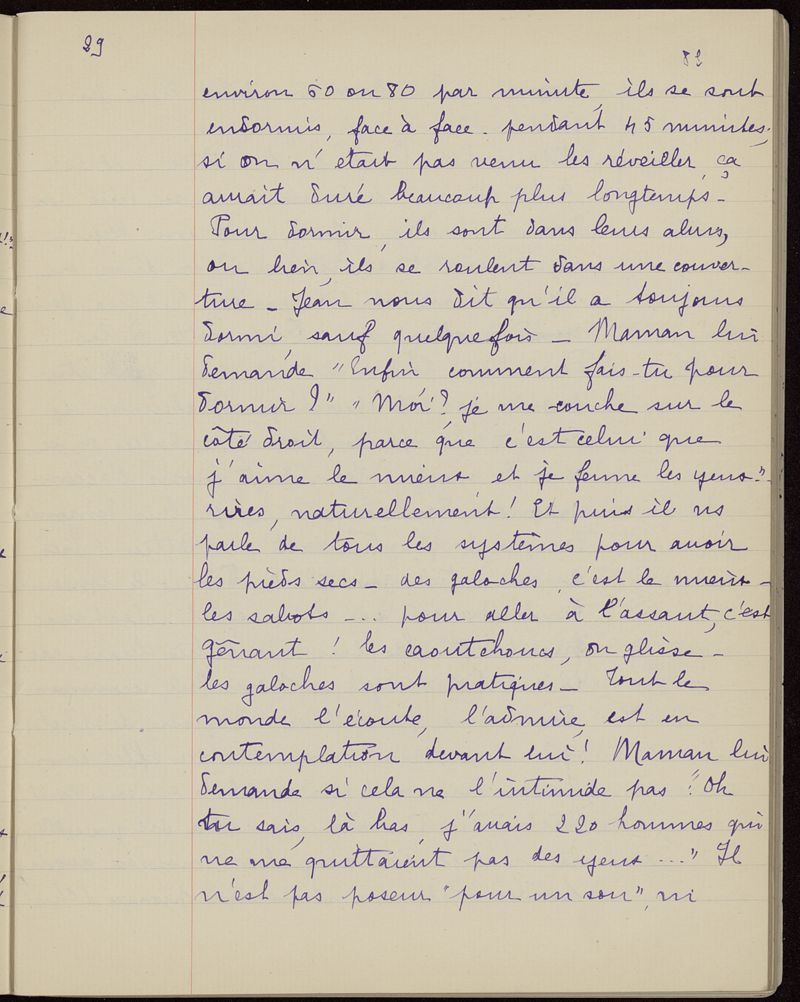 29
82
environ 60 ou 80 par minute, ils se sont
endormis, face à face. pendant 45 minutes;
si on n'était pas venu les réveiller, ça
aurait duré beaucoup plus longtemps -
Pour dormir, ils sont dans leurs abris,
ou bien, ils se roulent dans une couver-
ture - Jean nous dit qu'il a toujours
dormi, sauf quelquefois - Maman lui
demande "Enfin comment fais-tu pour
dormir ?" "Moi ? je me couche sur le
côté droit, parce que c'est celui que
j'aime le mieux et je ferme les yeux."-
rires, naturellement ! Et puis il ns
parle de tous les systèmes pour avoir
les pieds secs - des galoches, c'est le mieux -
les sabots -... pour aller à l'assaut, c'est
gênant ! les caoutchoucs, on glisse -
les galoches sont pratiques - Tout le
monde l'écoute, l'admire, est en
contemplation devant lui ! Maman lui
demande si cela ne l'intimide pas : "Oh
tu sais, là bas, j'avais 220 hommes qui
ne me quittaient pas des yeux ..." Il
n'est pas poseur "pour un sou", ni